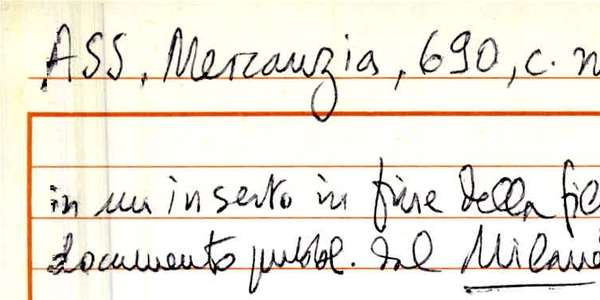 ASS, Mercanzia, 690, c. n
in un inserto in fine della fil
documento pubbl. dal Milano